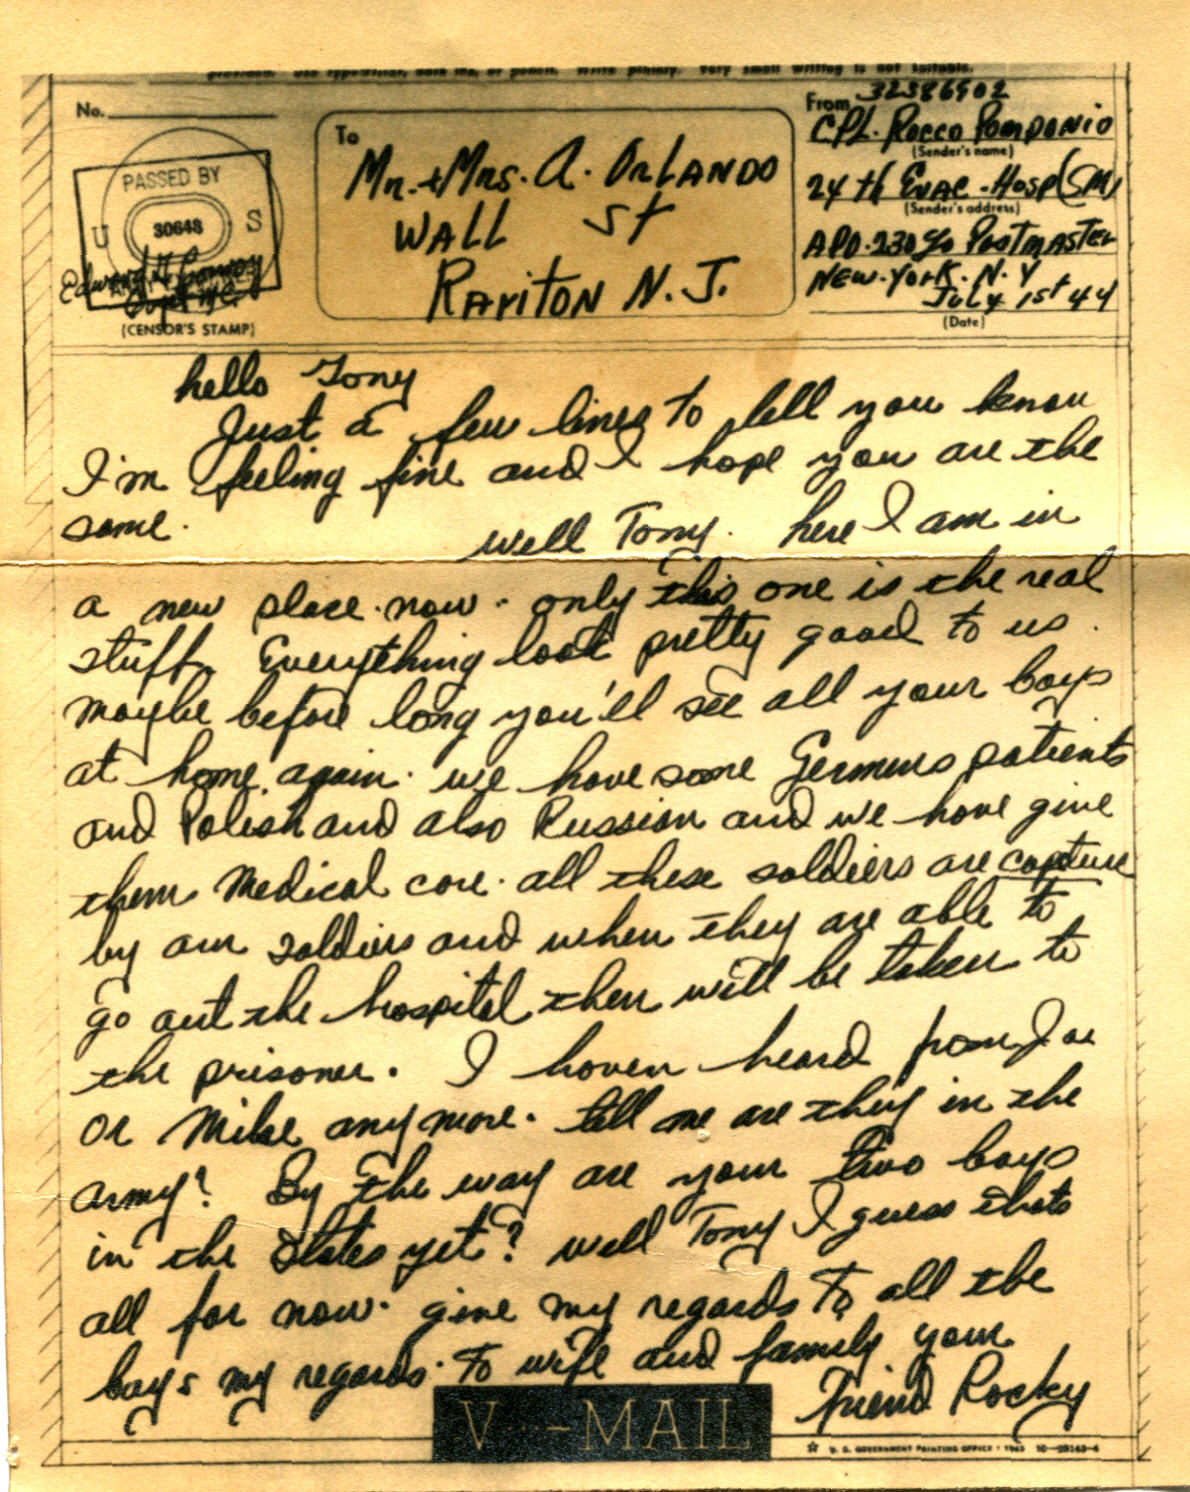 provided. Use typewriter, dark ink, or pencil. Write plainly. Very small writing is not suitable.
No.
PASSED BY
U 30648 S
(CENSOR'S STAMP)
To
Mr. + Mrs. A. Orlando
Wall St
Rariton N. J.
From 32386902
CPL. Rocco Pomponio
(Sender's name)
24th Evac-Hosp (SM)
(Sender's address)
APO-230 % Postmaster
New-York. N. Y
July 1st 44
(Date)
hello Tony
Just a few lines to tell you know
I'm feeling fine and I hope you are the
same.
well Tony. here I am in
a new place now. only this one is the real
stuff. Everything look pretty good to us.
maybe before long you'll see all your boys
at home again. we have some Germens patients
and Polish and also Russian and we have give
them Medical care. all these soldiers are capture
by our soldiers and when they are able to
go out the hospital then will be taken to
the prisoner. I haven heard from Joe
or Mike any more. tell me are they in the
army? By the way are your two boys
in the States yet? well Tony I guess thats
all for now. give my regards to all the
boys my regards. to wife and family your
friend Rocky
V--MAIL
☆ U. S. GOVERNMENT PRINTING OFFICE : 1943 16—28143-4